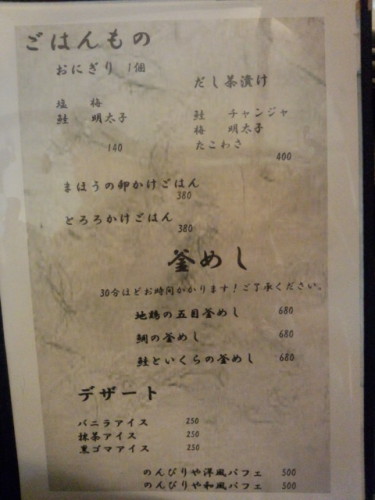 ごはんもの
おにぎり 1個
塩 梅
鮭 明太子
140
だし茶漬け
鮭 チャンジャ
梅 明太子
たこわさ
400
まほうの卵かけごはん
380
とろろかけごはん
380
釜めし
30分ほどお時間かかります！ご了承ください。
地鶏の五目釜めし 680
鯛の釜めし 680
鮭といくらの釜めし 680
デザート
バニラアイス 250
抹茶アイス 250
黒ゴマアイス 250
のんびりや洋風パフェ 500
のんびりや和風パフェ 500